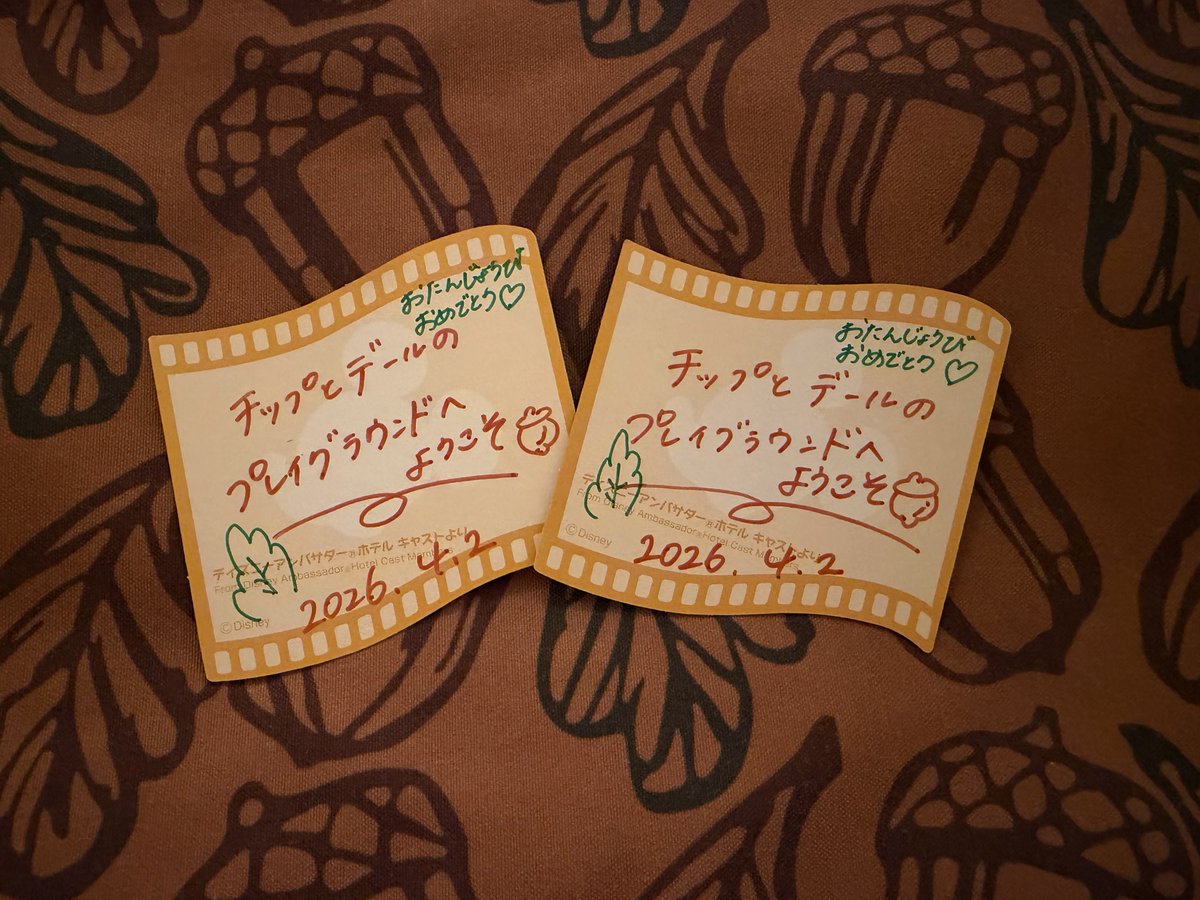 おたんじょうび
おめでとう♡
チップとデールの
プレイグラウンドへ
ようこそ
ディズニーアンバサダー®ホテル キャストより
From Disney Ambassador®Hotel Cast Members
©Disney
2026.4.2
おたんじょうび
おめでとう♡
チップと デールの
プレイグラウンドへ
ようこそ
ディズニーアンバサダー®ホテル キャストより
From Disney Ambassador®Hotel Cast Members
©Disney
2026.4.2